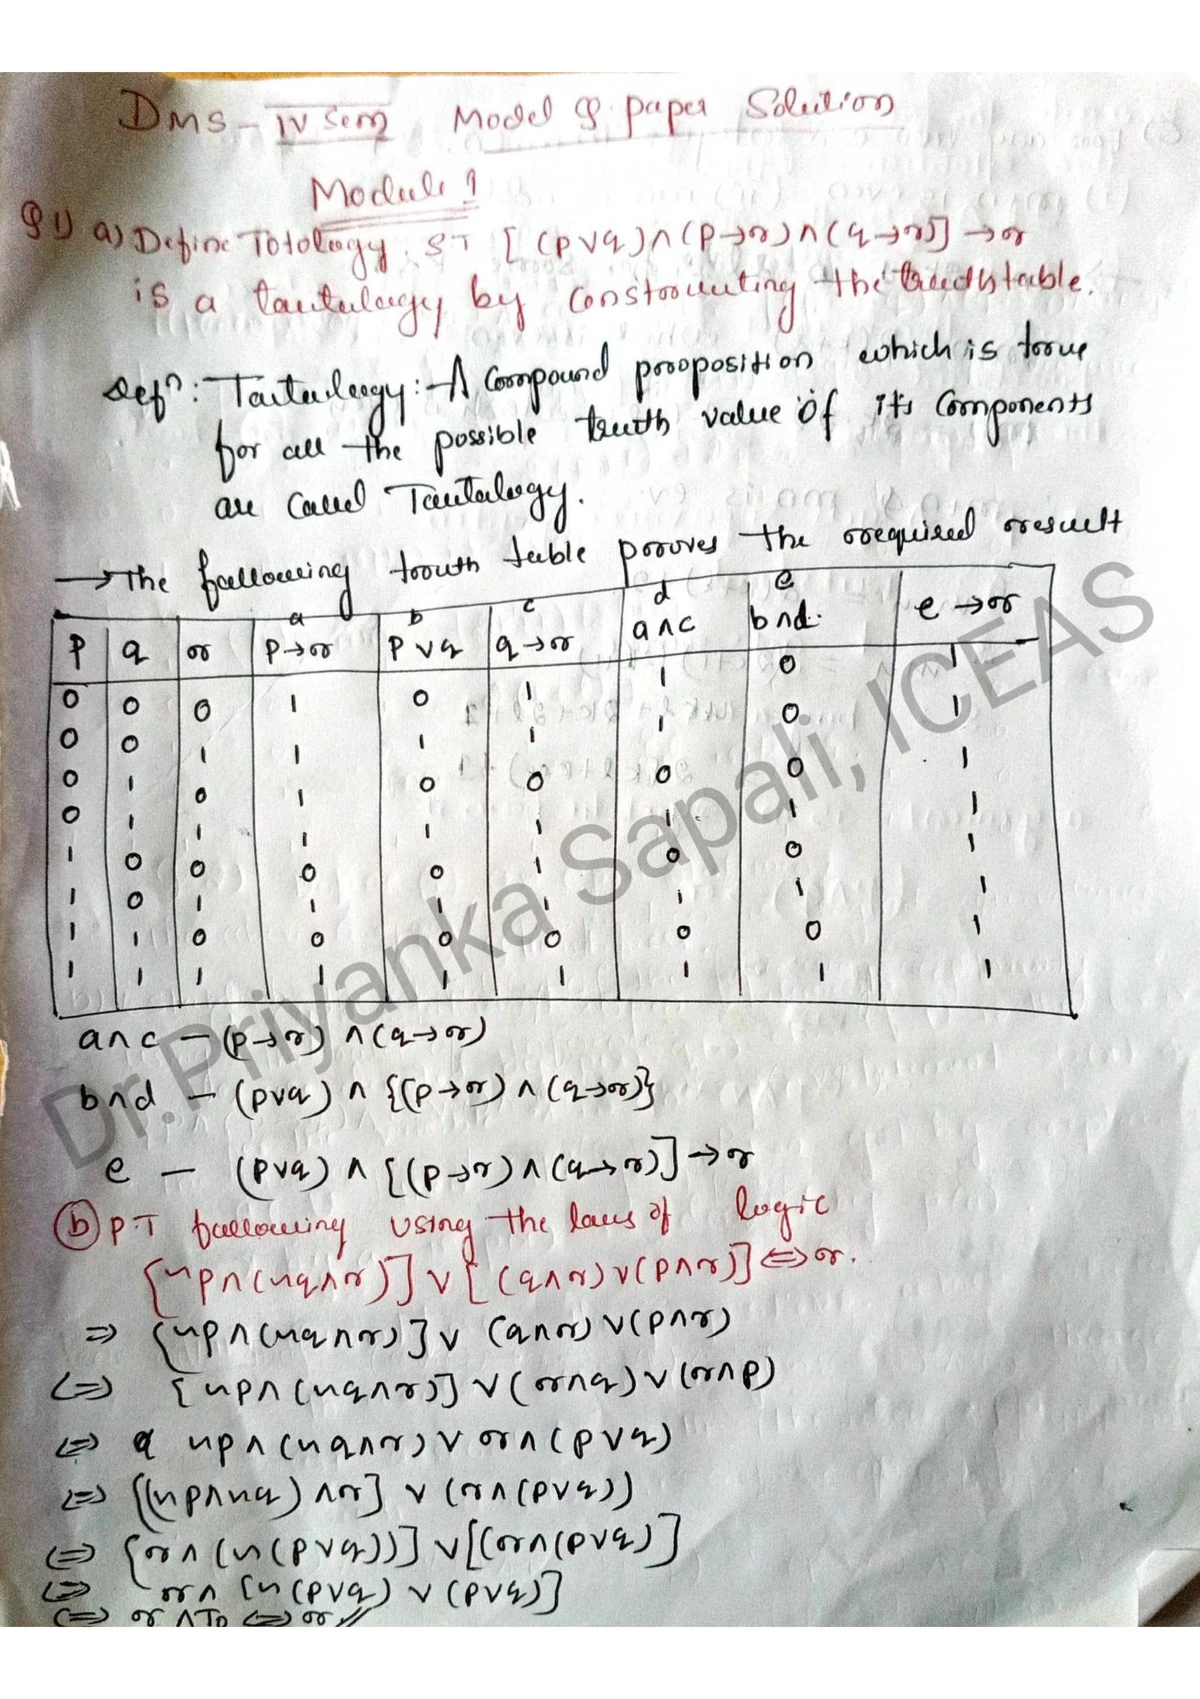 DMS - IV Sem Model Q paper Solution
Module 1
Q1) a) Define Totology. S T [(p∨q)∧(p→r)∧(q→r)]→r
is a tautulogy by constructing the truth table.
Defⁿ: Tautulogy:- A Compound proposition which is true
for all the possible truth value of its Components
are Called Tautalogy.
→ The following truth table proves the required result
a b c d e
p q r p→r p∨q q→r a∧c b∧d. e→r
0 0 0 1 0 1 1 0 1
0 0 1 1 1 1 1 0 1
0 1 0 1 0 0 0 0 1
0 1 1 1 1 1 1 1 1
1 0 0 0 0 1 0 0 1
1 0 1 1 1 1 1 1 1
1 1 0 0 0 0 0 0 1
1 1 1 1 1 1 1 1 1
a∧c – (p→r) ∧(q→r)
b∧d – (p∨q) ∧ {(p→r) ∧ (q→r)}
e – (p∨q) ∧ [(p→r)∧(q→r)]→r
(b) P.T following using the laws of logic
[~p∧(~q∧r)]∨[(q∧r)∨(p∧r)]⇔r.
⇒ [~p∧(~q∧r)]∨ (q∧r)∨(p∧r)
⇔ [~p∧(~q∧r)]∨(r∧q)∨(r∧p)
⇔ ~p∧(~q∧r)∨ r∧(p∨q)
⇔ [(~p∧~q)∧r] ∨ (r∧(p∨q))
⇔ [r∧(~(p∨q))]∨[(r∧(p∨q)]
⇔ r∧ [~(p∨q) ∨ (p∨q)]
⇔ r∧T₀ ⇔ r//
Dr.Priyanka Sapali, ICEAS